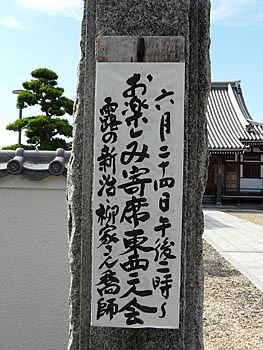 六月二十四日午後二時～
お楽しみ寄席東西二人会
露の新治 柳家さん喬師